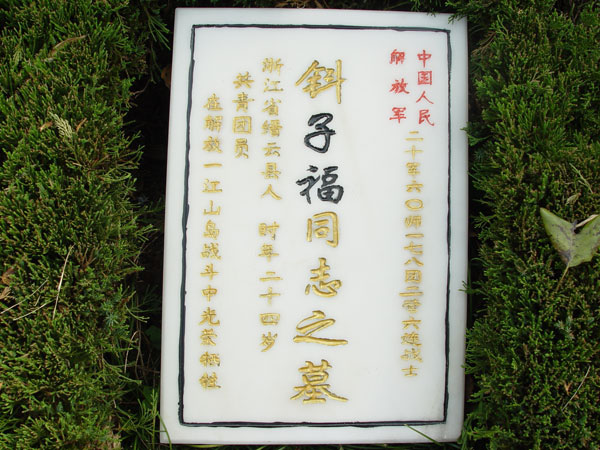 中国人民
解放军
二十军六〇师一七八团二营六连战士
斜子福同志之墓
浙江省缙云县人 时年二十四岁
共青团员
在解放一江山岛战斗中光荣牺牲